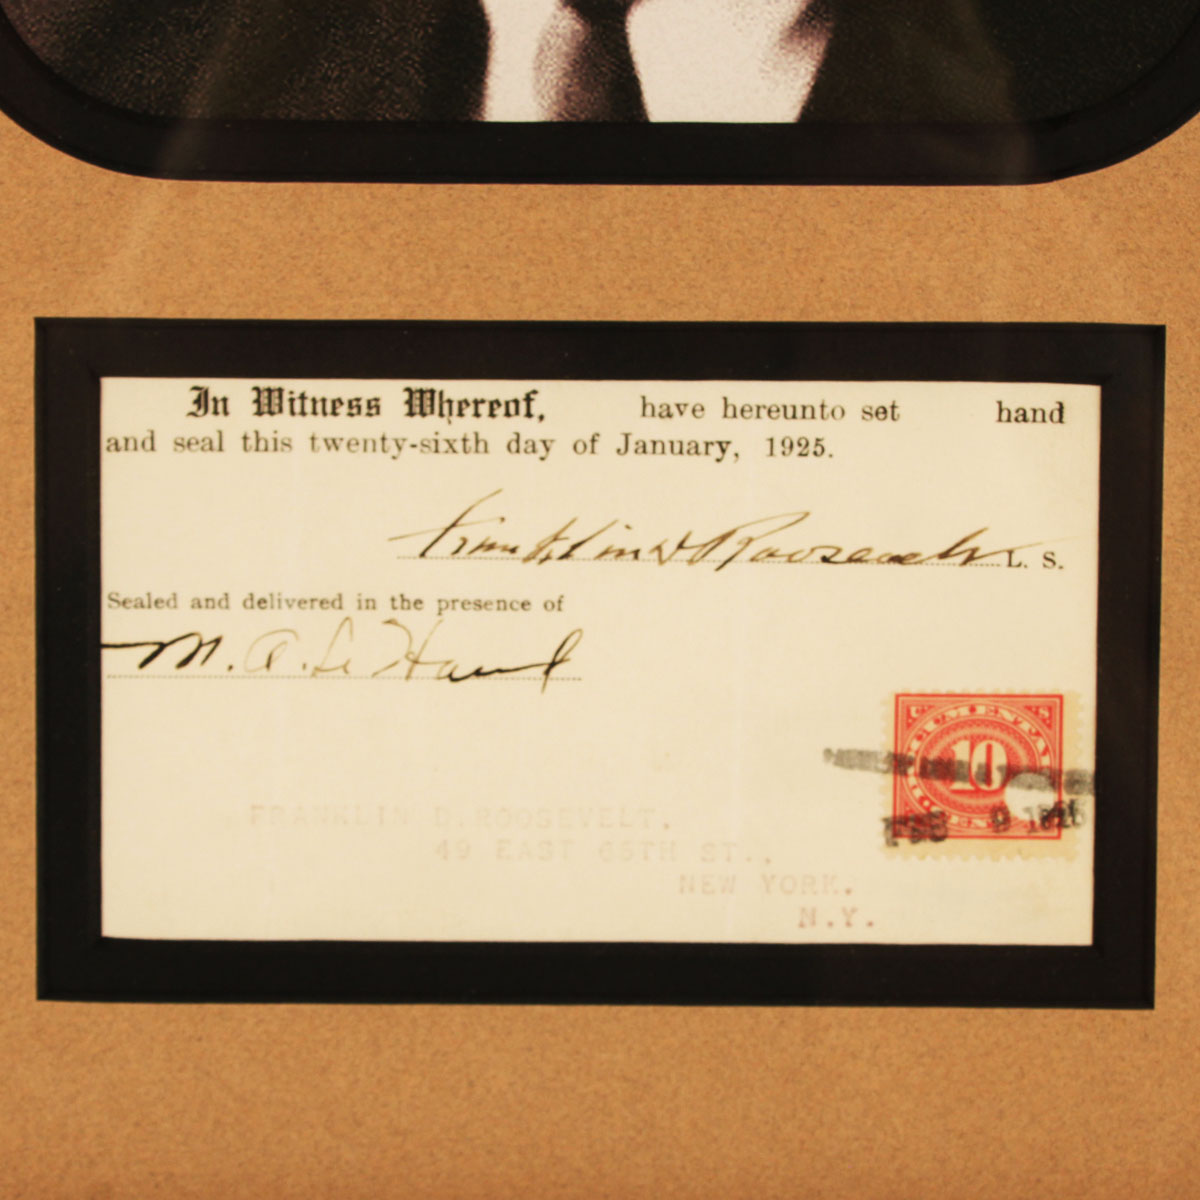 In Witness Whereof, have hereunto set hand
and seal this twenty-sixth day of January, 1925.
Franklin D Roosevelt L. S.
Sealed and delivered in the presence of
M. A. Le Hand
U. S.
DOCUMENTARY
10
CENTS
FEB 9 1925
FRANKLIN D. ROOSEVELT.
49 EAST 65TH ST.,
NEW YORK.
N.Y.